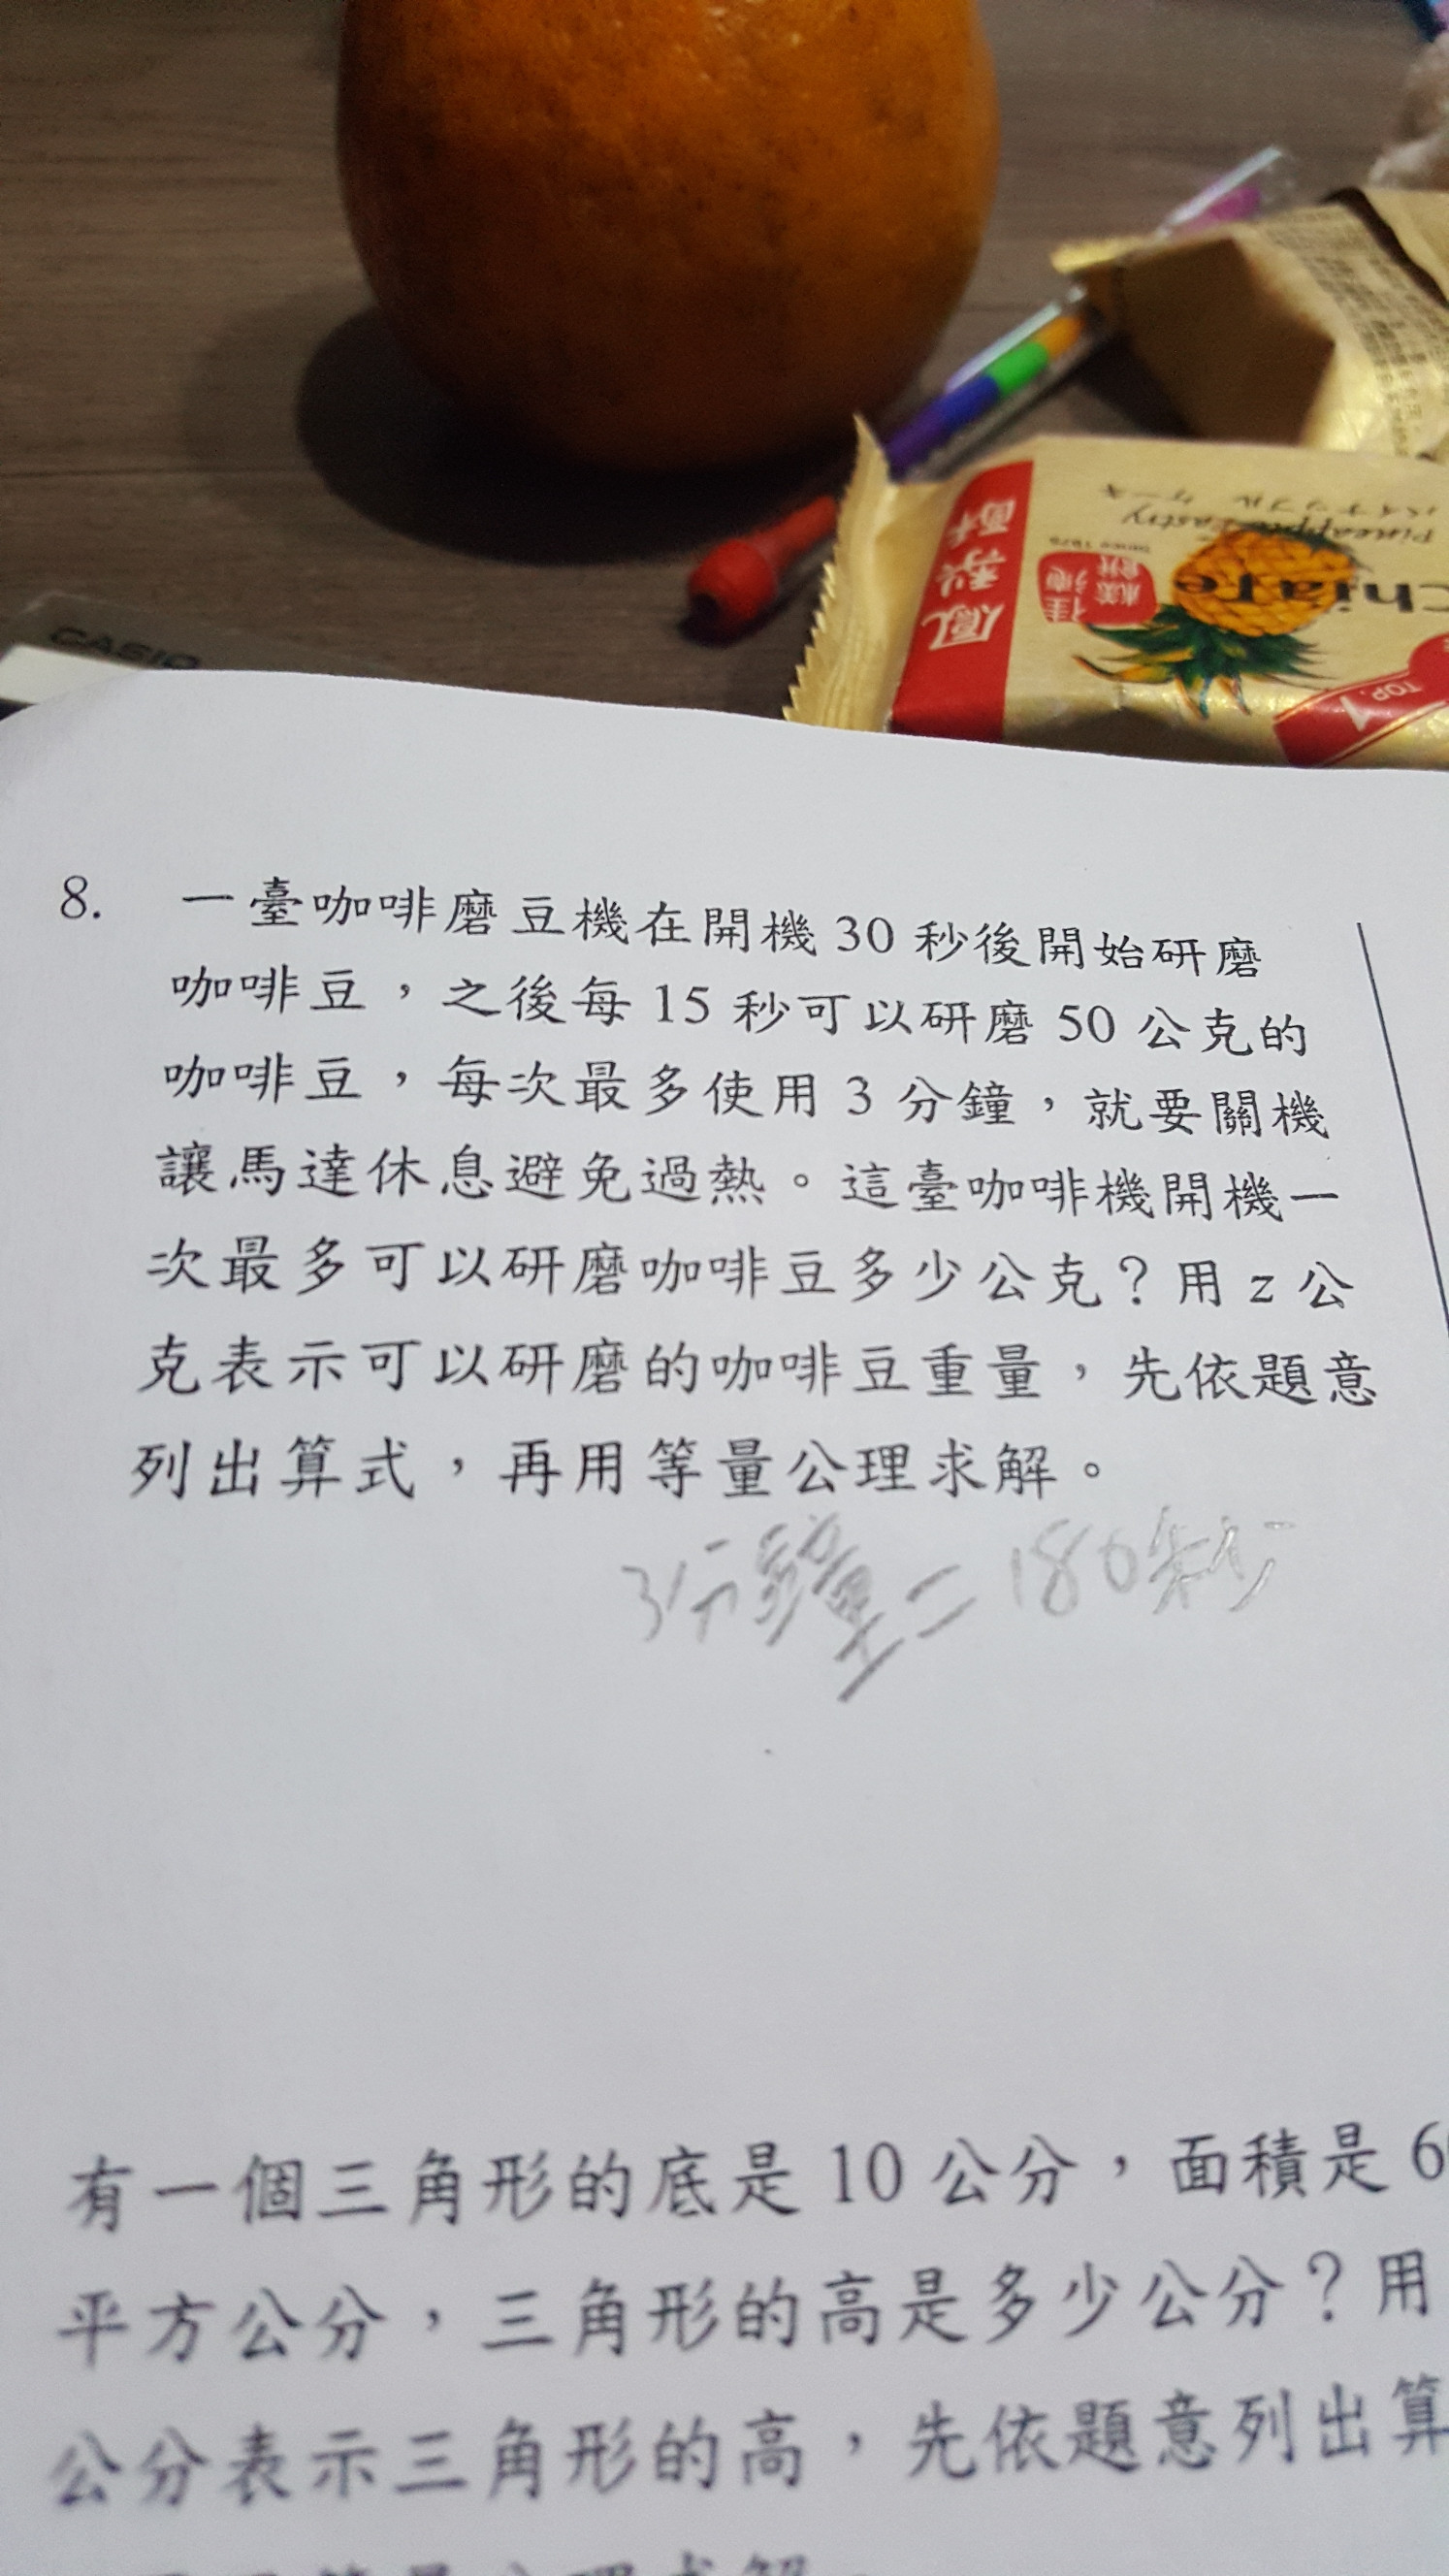 CASIO
鳳梨酥
佳德
糕餅
Since 1975
Pineapple Pastry
パイナップル ケーキ
TOP.1
8. 一臺咖啡磨豆機在開機 30 秒後開始研磨
咖啡豆，之後每 15 秒可以研磨 50 公克的
咖啡豆，每次最多使用 3 分鐘，就要關機
讓馬達休息避免過熱。這臺咖啡機開機一
次最多可以研磨咖啡豆多少公克？用 z 公
克表示可以研磨的咖啡豆重量，先依題意
列出算式，再用等量公理求解。
3分鐘=180秒
有一個三角形的底是 10 公分，面積是 6
平方公分，三角形的高是多少公分？用
公分表示三角形的高，先依題意列出算